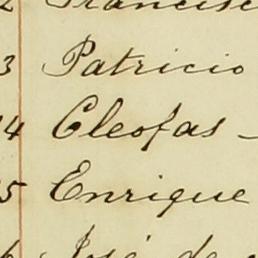 2 Francisc
3 Patricio
4 Cleofas -
5 Enrique
6 José de